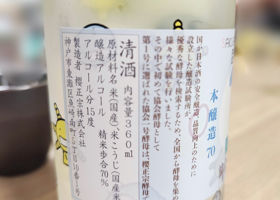 国が日本酒の安全醸造、品質向上のために
設立した醸造試験所が、
優秀な酵母を検索するため、全国から酵母を集め
様々な試験を行いました。
その中で初めて協会酵母として
第1号に選ばれた
協会一号酵母は、櫻正宗酵母で
本醸造70
清酒 内容量360ml
原材料名 米(国産)米こうじ(国産米
醸造アルコール 精米歩合70%
アルコール分15度
製造者 櫻正宗株式会社
神戸市東灘区魚崎南町5丁目10番1号